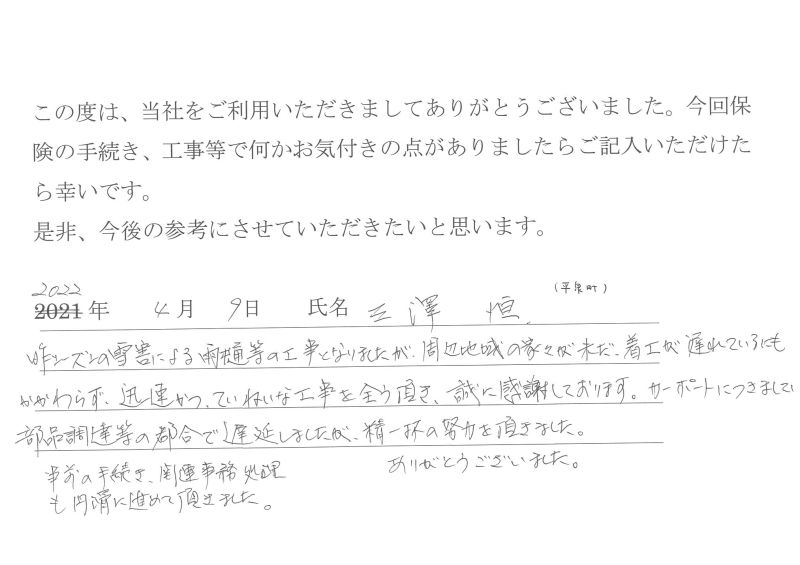 この度は、当社をご利用いただきましてありがとうございました。今回保
険の手続き、工事等で何かお気付きの点がありましたらご記入いただけた
ら幸いです。
是非、今後の参考にさせていただきたいと思います。
2022 (平泉町)
2021年 4月 9日 氏名 三澤 恒
昨シーズンの雪害による雨樋等の工事となりましたが、周辺地域の家々が未だ、着工が遅れているにも
かかわらず、迅速かつ、ていねいな工事を全う頂き、誠に感謝しております。カーポートにつきまして
部品調達等の都合で遅延しましたが、精一杯の努力を頂きました。
事前の手続き、関連事務処理 ありがとうございました。
も円滑に進めて頂きました。